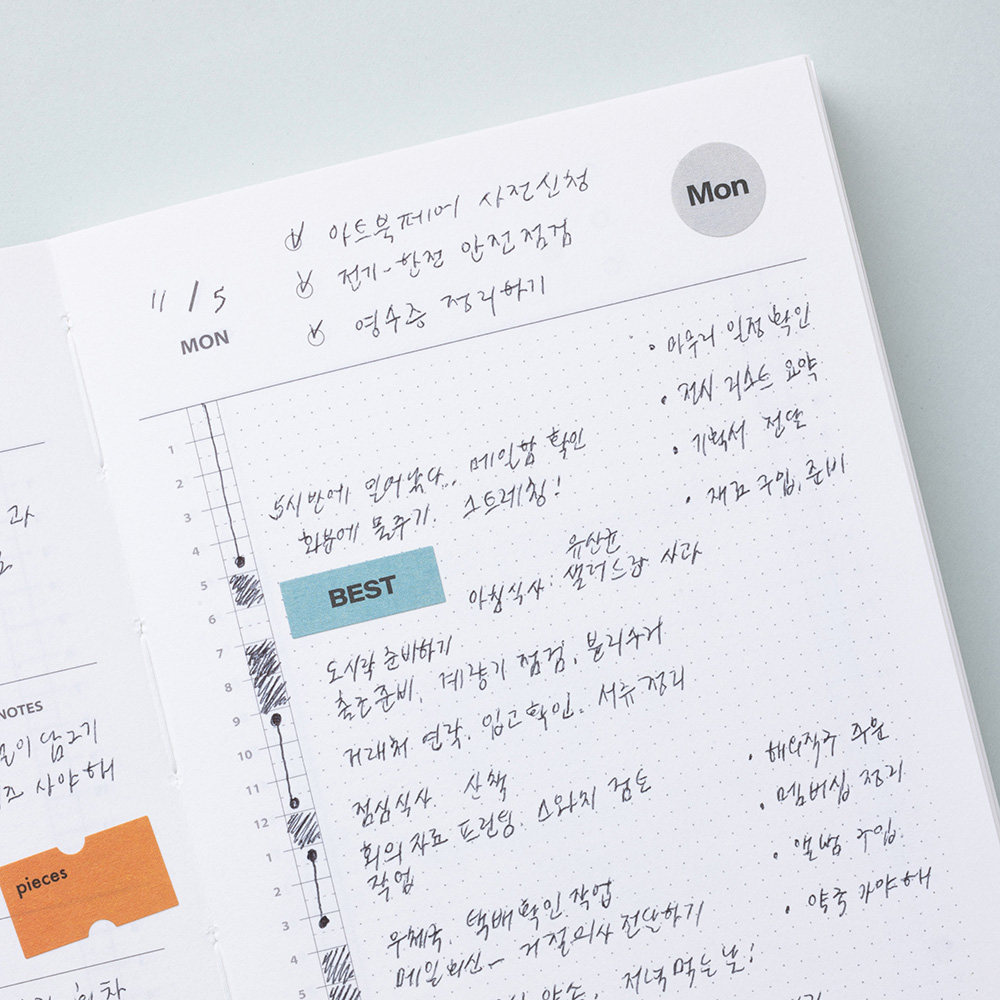 아트북페어 사전신청
전기-한전 안전점검
영수증 정리하기
Mon
11 / 5
MON
• 마무리 일정 확인
• 전시 리스트 요약
• 기획서 전달
• 재료 구입, 준비
1
2
3
4
5
6
7
8
9
10
11
12
1
2
3
4
5
5시반에 일어났다... 메일함 확인
화분에 물주기. 스트레칭!
BEST
유산균
아침식사: 샐러드랑 사과
도시락 준비하기
출근준비. 계량기 점검. 분리수거
거래처 연락. 입고확인. 서류정리
점심식사. 산책
회의 자료 프린팅. 스와치 발송
작업
우체국. 택배확인 작업
메일회신 - 거절의사 전달하기
저녁 먹는 날!
• 해외직구 주문
• 멤버십 정리
• 앨범 구입.
• 약국 가야해
과
NOTES
이 담그기
사야해
pieces
회차